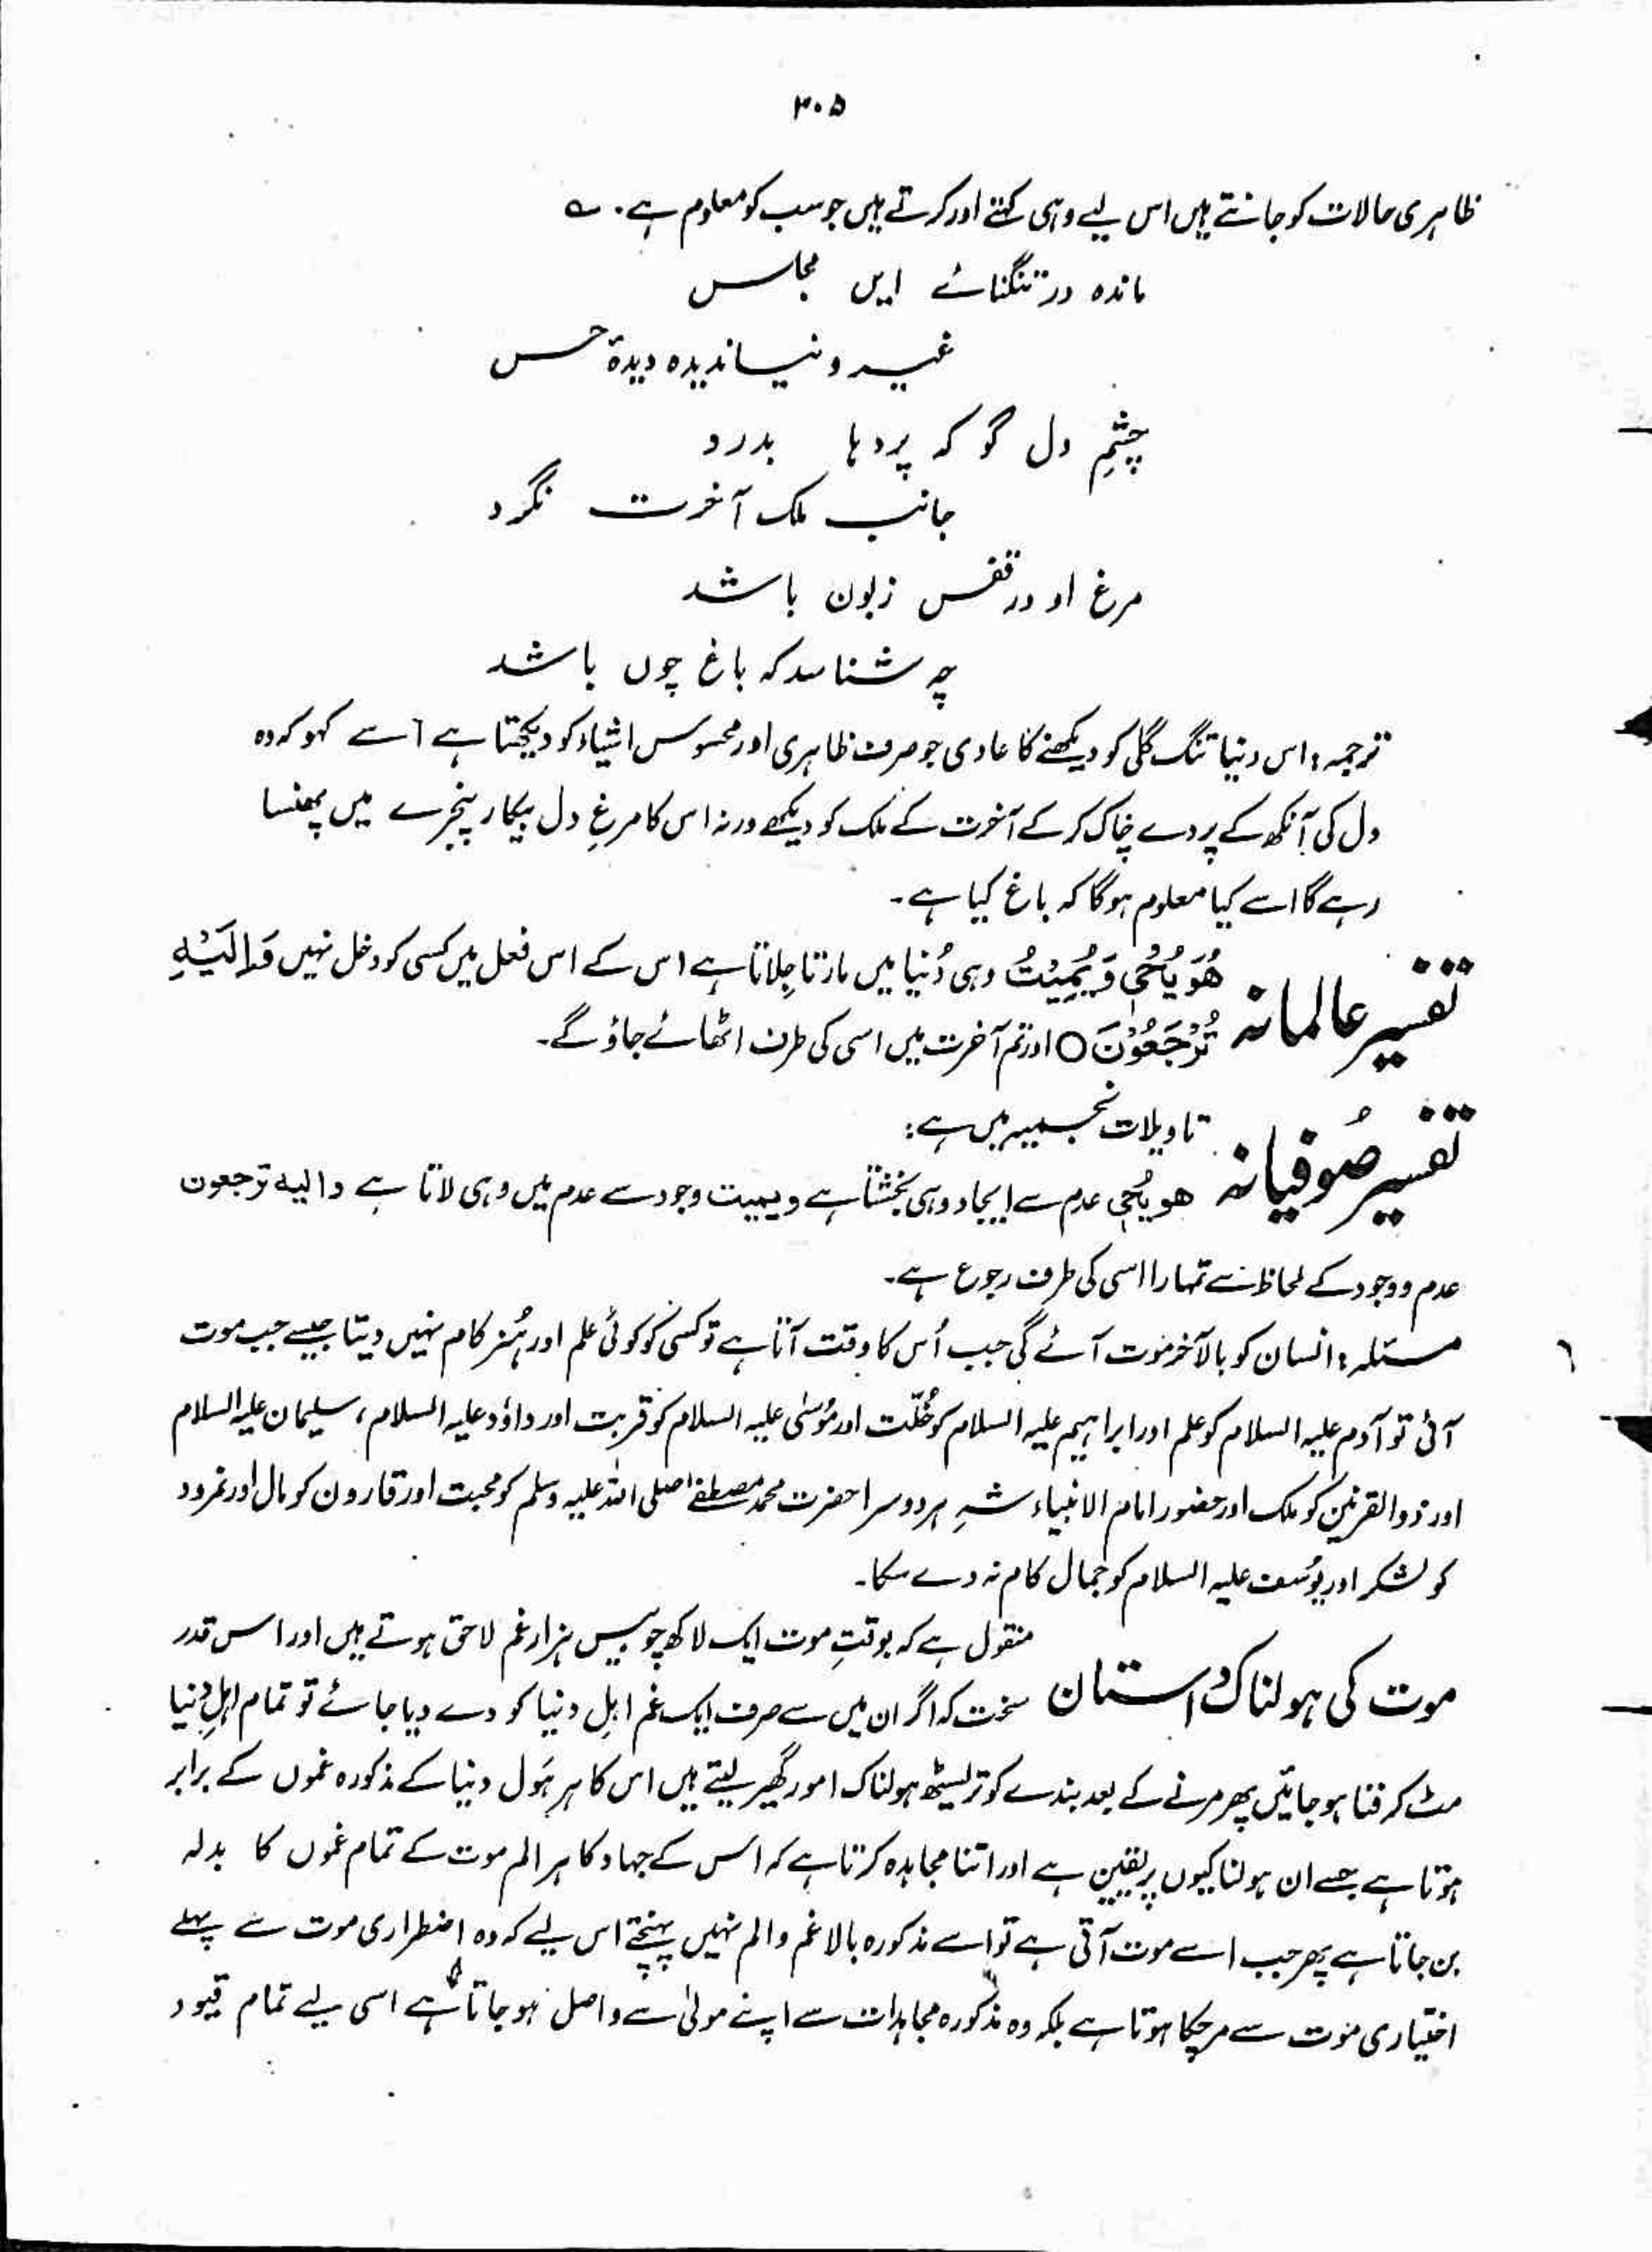 ۳۰۵
ظاہری حالات کو جانتے ہیں اس لیے وہی کہتے اور کرتے ہیں جو سب کو معلوم ہے۔ ؎
ماندہ در تنگنائے ایں مجلس
غیر و نیا ندیدہ دیدۂ حس
چشمِ دل گو کہ پردہا بدرد
جانب ملک آخرت نگرد
مرغ او در قفس زبون باشد
چہ شناسد کہ باغ چوں باشد
ترجمہ: اس دنیا تنگ گلی کو دیکھنے کا عادی جو صرف ظاہری اور محسوس اشیاء کو دیکھتا ہے اسے کہو کہ وہ
دل کی آنکھ کے پردے چاک کر کے آخرت کے ملک کو دیکھے ورنہ اس کا مرغِ دل بیکار پنجرے میں پھنسا
رہے گا اسے کیا معلوم ہوگا کہ باغ کیا ہے۔
تفسیر عالمانہ هُوَ يُحْيٖ وَيُمِيْتُ وہی دُنیا میں مارتا جِلاتا ہے اس کے اس فعل میں کسی کو دخل نہیں وَاِلَيْهِ
تُرْجَعُوْنَ ○ اور تم آخرت میں اسی کی طرف اٹھائے جاؤ گے۔
تفسیر صُوفیانہ تاویلات نجمیہ میں ہے:
هو يُحْيٖ عدم سے ایجاد وہی بخشتا ہے ويميت وجود سے عدم میں وہی لاتا ہے واليه ترجعون
عدم و وجود کے لحاظ سے تمہارا اسی کی طرف رجوع ہے۔
مسئلہ: انسان کو بالآخر موت آئے گی جب اُس کا وقت آتا ہے تو کسی کو کوئی علم اور ہُنر کام نہیں دیتا جیسے جب موت
آئی تو آدم علیہ السلام کو علم اور ابراہیم علیہ السلام کو خُلّت اور مُوسٰی علیہ السلام کو قربت اور داؤد علیہ السلام، سلیمان علیہ السلام
اور ذوالقرنین کو ملک اور حضور امام الانبیاء شہِ ہر دوسرا حضرت محمد مصطفےٰ صلی اللہ علیہ وسلم کو محبت اور قارون کو مال اور نمرود
کو لشکر اور یُوسف علیہ السلام کو جمال کام نہ دے سکا۔
موت کی ہولناک داستان منقول ہے کہ بوقتِ موت ایک لاکھ چوبیس ہزار غم لاحق ہوتے ہیں اور اس قدر
سخت کہ اگر ان میں سے صرف ایک غم اہلِ دنیا کو دے دیا جائے تو تمام اہلِ دنیا
مٹ کر فنا ہو جائیں پھر مرنے کے بعد بندے کو تریسٹھ ہولناک امور گھیر لیتے ہیں اس کا ہر ہَول دنیا کے مذکورہ غموں کے برابر
ہوتا ہے جسے ان ہولناکیوں پر یقین ہے اور اتنا مجاہدہ کرتا ہے کہ اس کے جہاد کا ہر الم موت کے تمام غموں کا بدلہ
بن جاتا ہے پھر جب اسے موت آتی ہے تو اسے مذکورہ بالا غم و الم نہیں پہنچتے اس لیے کہ وہ اضطراری موت سے پہلے
اختیاری موت سے مر چکا ہوتا ہے بلکہ وہ مذکورہ مجاہدات سے اپنے مولیٰ سے واصل ہو جاتا ہے اسی لیے تمام قیود